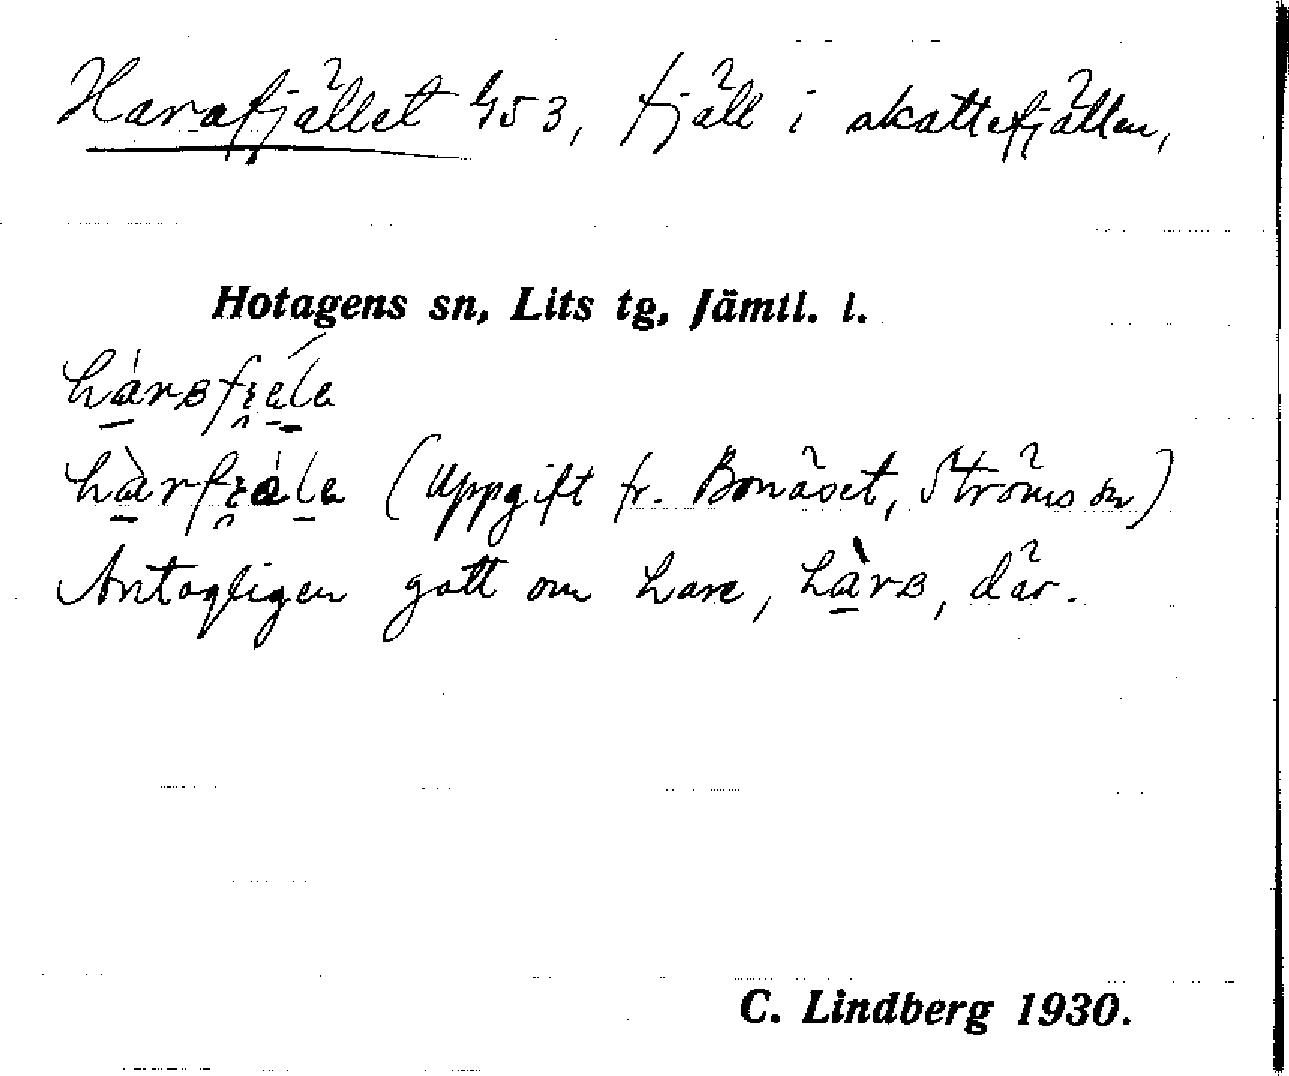 Harafjället 453, fjäll i skattefjällen,
Hotagens sn, Lits tg, Jämtl. l.
(Uppgift fr. Bonäset, Ströms sn)
Antagligen gott om hare, där.
C. Lindberg 1930.